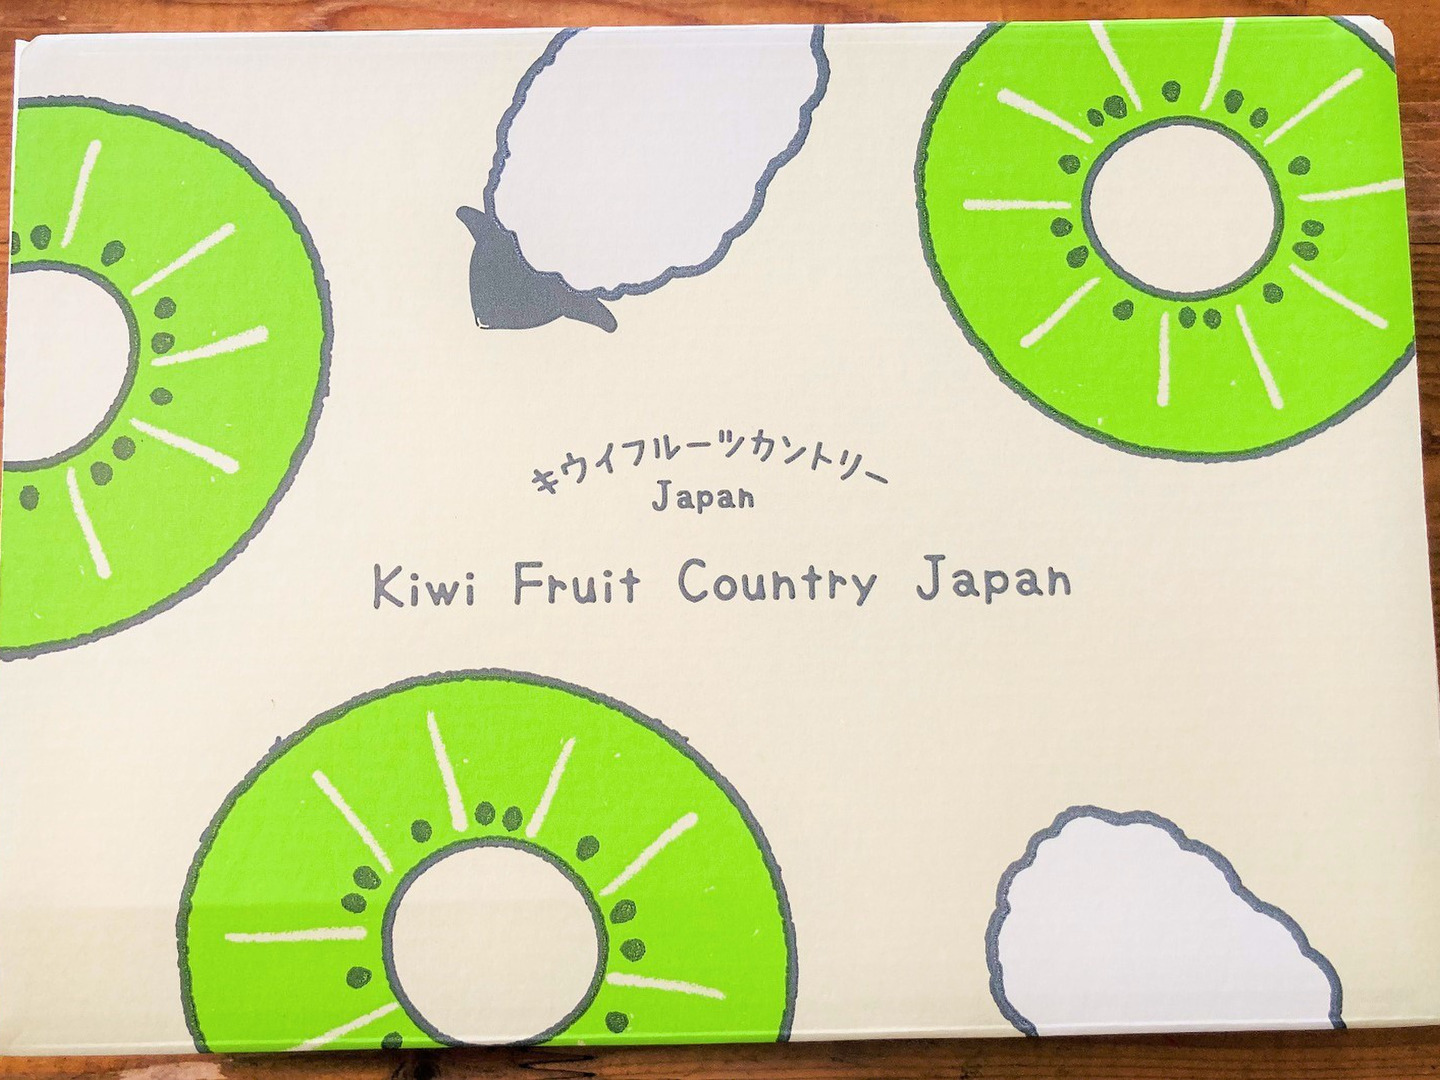 キウイフルーツカントリー
Japan
Kiwi Fruit Country Japan